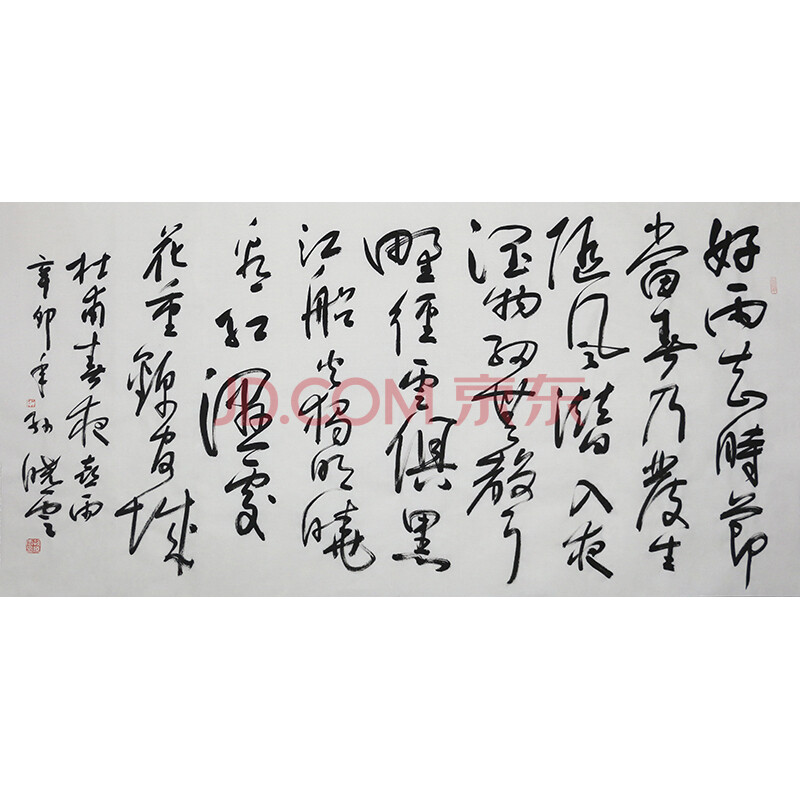 好雨知時節
當春乃發生
隨風潛入夜
潤物細無聲
野徑雲俱黑
江船火獨明曉
看紅濕處
花重錦官城
杜甫春夜喜雨
辛卯年孫曉雲
JD.COM 京东